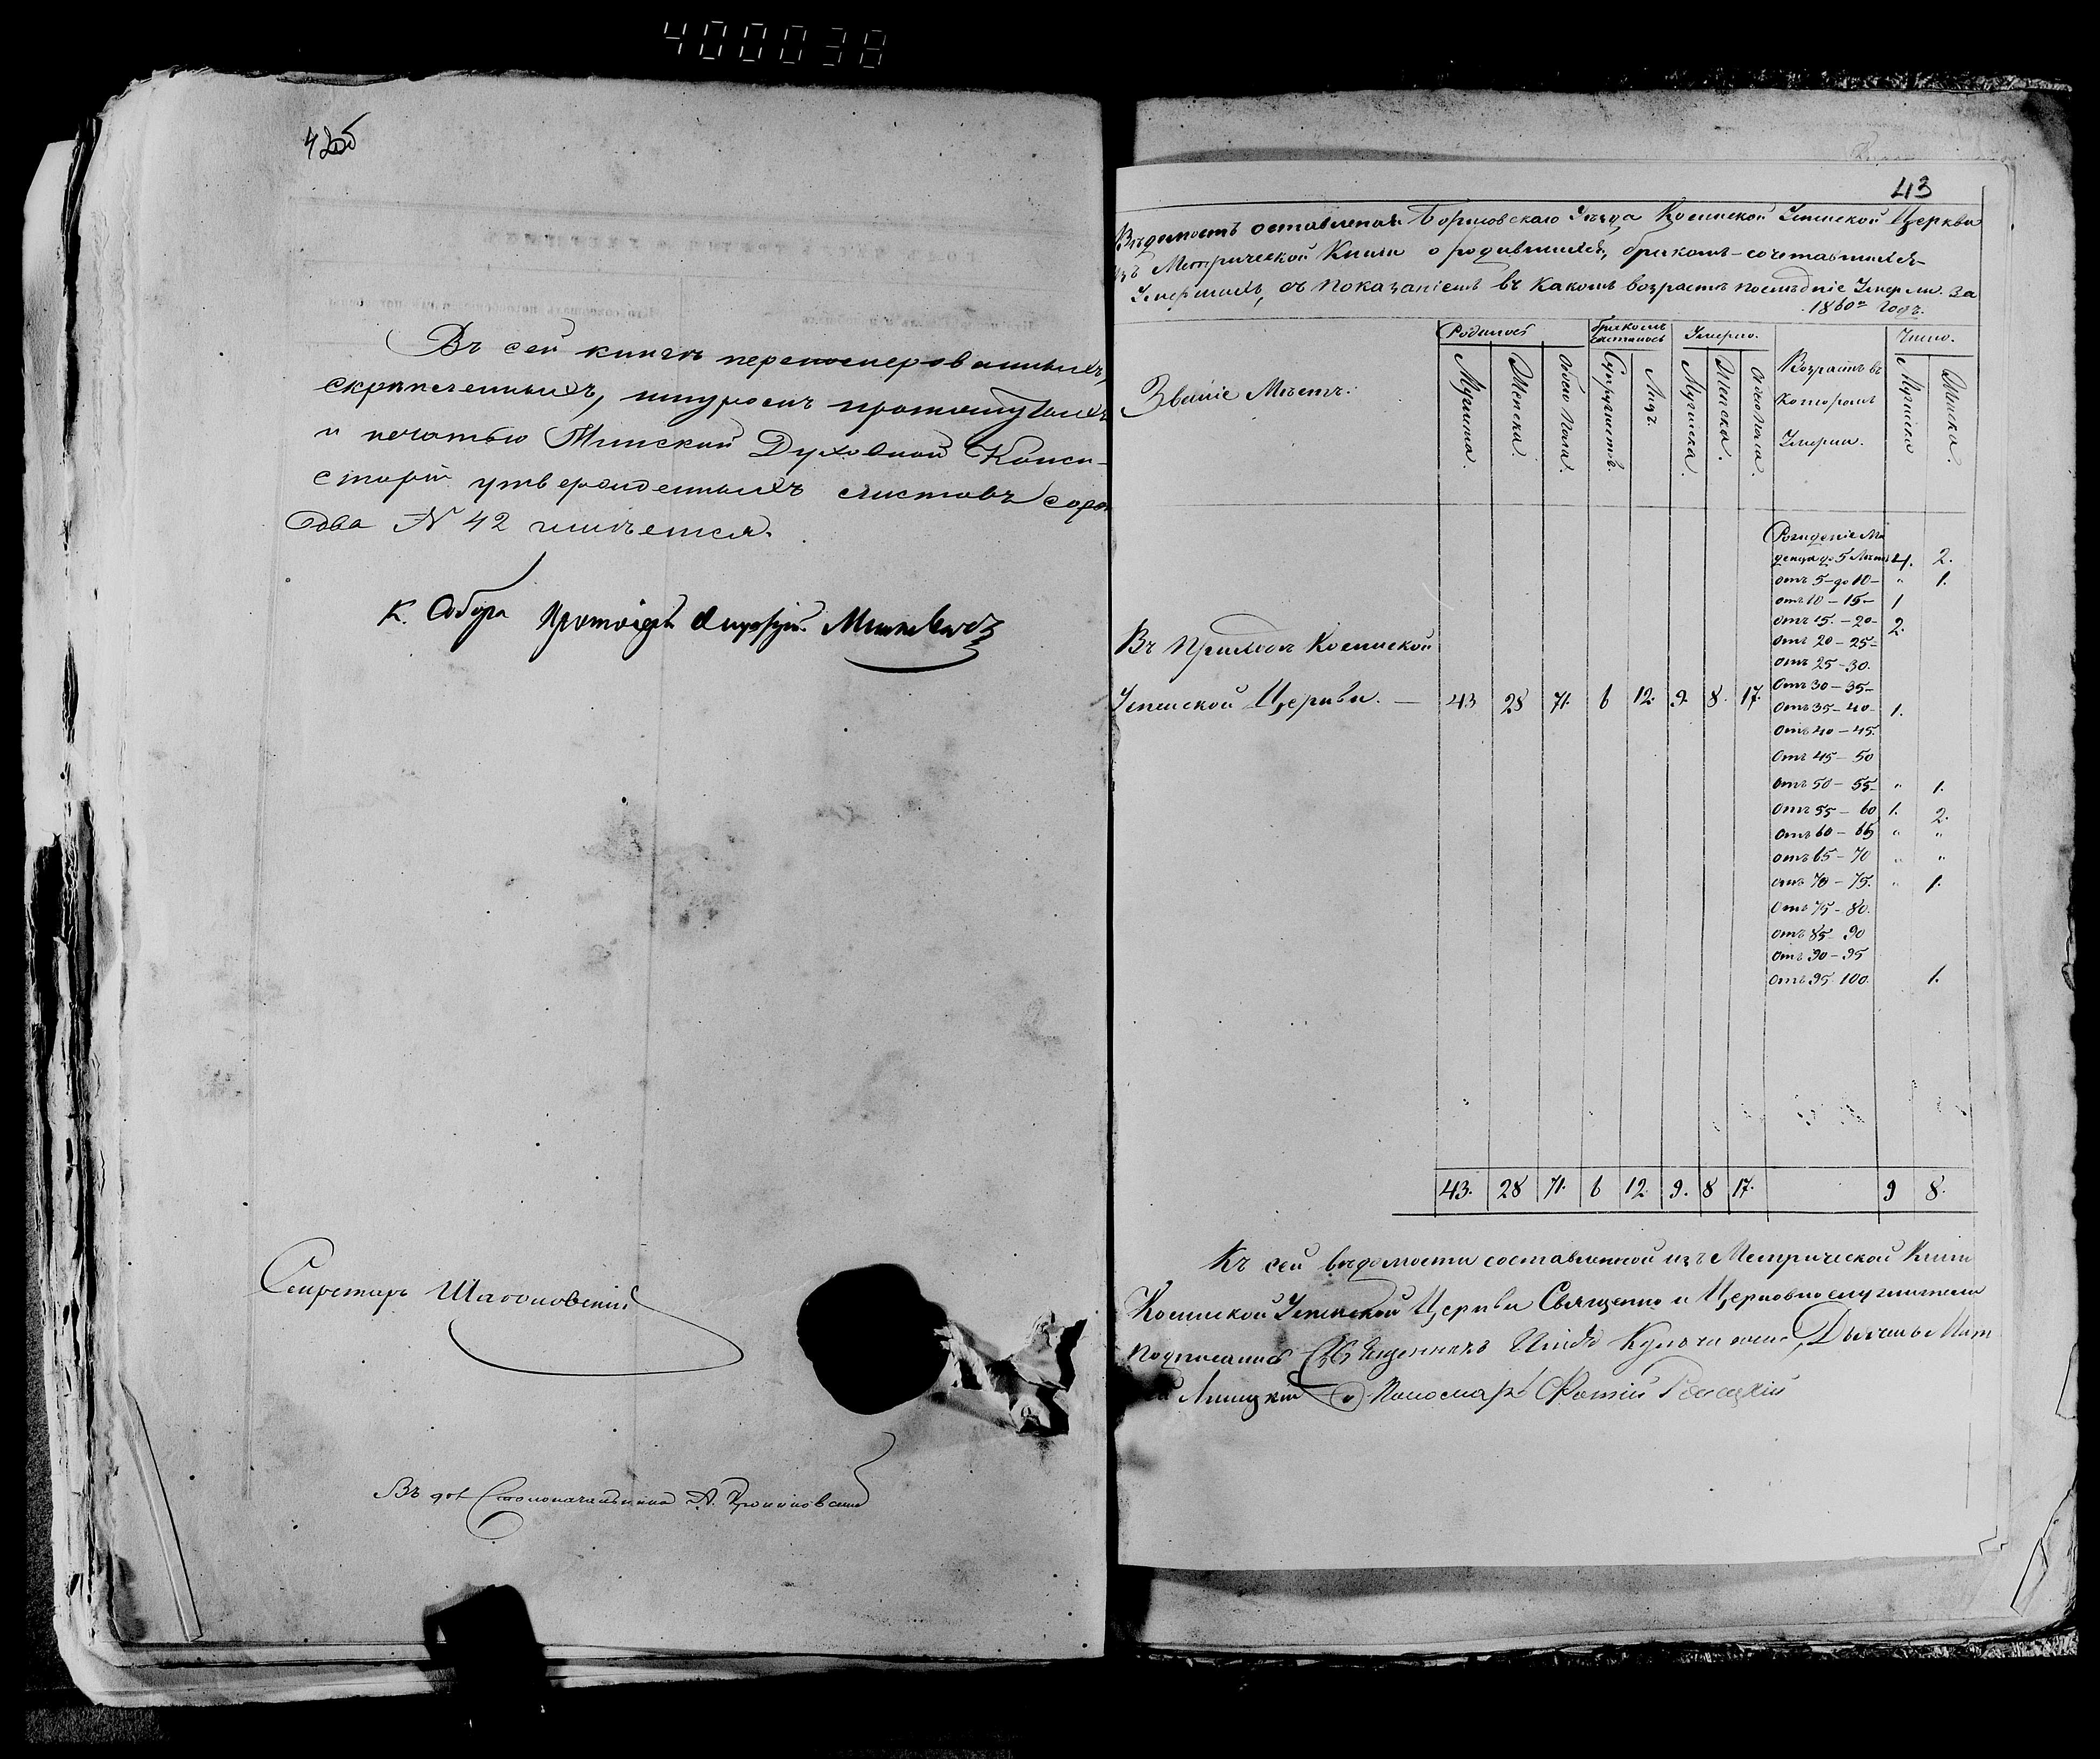 400038
42об
Въ сей книгѣ перенумерованныхъ,
скрѣпленныхъ, шнуромъ протянутыхъ
и печатью Минской Духовной Конси-
сторіи утвержденныхъ листовъ сорокъ
два № 42 имѣется.
К. Собора Протоіерей
Секретарь
Въ дол. Столоначальника А.
43
Вѣдомость оставленая Борисовскаго Уѣзда Косинской Успенской Церкви
изъ Метрической Книги о родившихся, бракомъ-сочетавшихся
Умершихъ, съ показаніемъ въ какомъ возрастѣ послѣдніе Умерли. За
1860й Годъ.
Званіе Мѣстъ.
Родилось
бракомъ сочеталось
Умерло.
Возрастъ въ
которомъ
Умерли.
Число.
Мужеска. Женска. Обоего Пола. Супружествъ. Лицъ. Мужеска. Женска. Обоего Пола. Мужеска Женска.
Рожденіе Мла
денца до 5 Лѣтъ 4. 2.
Отъ 5 - до 10 - " 1.
Отъ 10 - 15 - 1
Отъ 15. - 20 - 2.
Отъ 20 - 25 -
Отъ 25 - 30.
Въ Приходѣ Косинской
Успенской Церкви. — 43 28 71. 6 12. 9. 8. 17.
Отъ 30 - 35 -
Отъ 35 - 40 - 1.
Отъ 40 - 45.
Отъ 45 - 50
Отъ 50 - 55 - " 1.
Отъ 55 - 60 1. 2.
Отъ 60 - 65 " "
Отъ 65 - 70 " "
Отъ 70 - 75. " 1.
Отъ 75 - 80.
Отъ 85 - 90
Отъ 90 - 95
Отъ 95 100. 1.
43. 28 71. 6 12. 9. 8 17. 9 8.
Къ сей вѣдомости составленной изъ Метрической Книги
Косинской Успенской Церкви Священно и Церковнослужители
подписались Священникъ
Пономарь Фотій